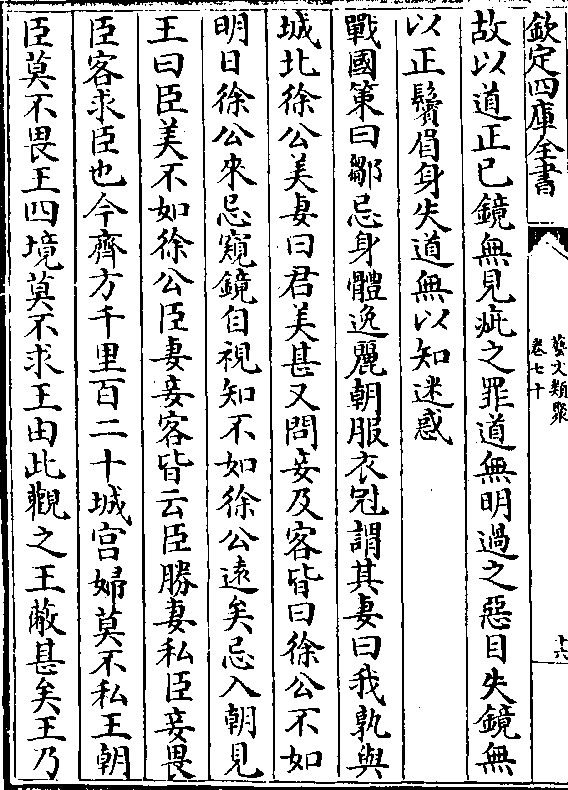 欽定四庫全書
藝文類聚
卷七十
十六
故以道正已鏡無見疵之罪道無明過之惡目失鏡無
以正鬢眉身失道無以知迷惑
戰國策曰鄒忌身體逸麗朝服衣冠謂其妻曰我孰與
城北徐公美妻曰君美甚又問妾及客皆曰徐公不如
明日徐公來忌窺鏡自視知不如徐公遠矣忌入朝見
王曰臣美不如徐公臣妻妾客皆云臣勝妻私臣妾畏
臣客求臣也今齊方千里百二十城宫婦莫不私王朝
臣莫不畏王四境莫不求王由此觀之王蔽甚矣王乃